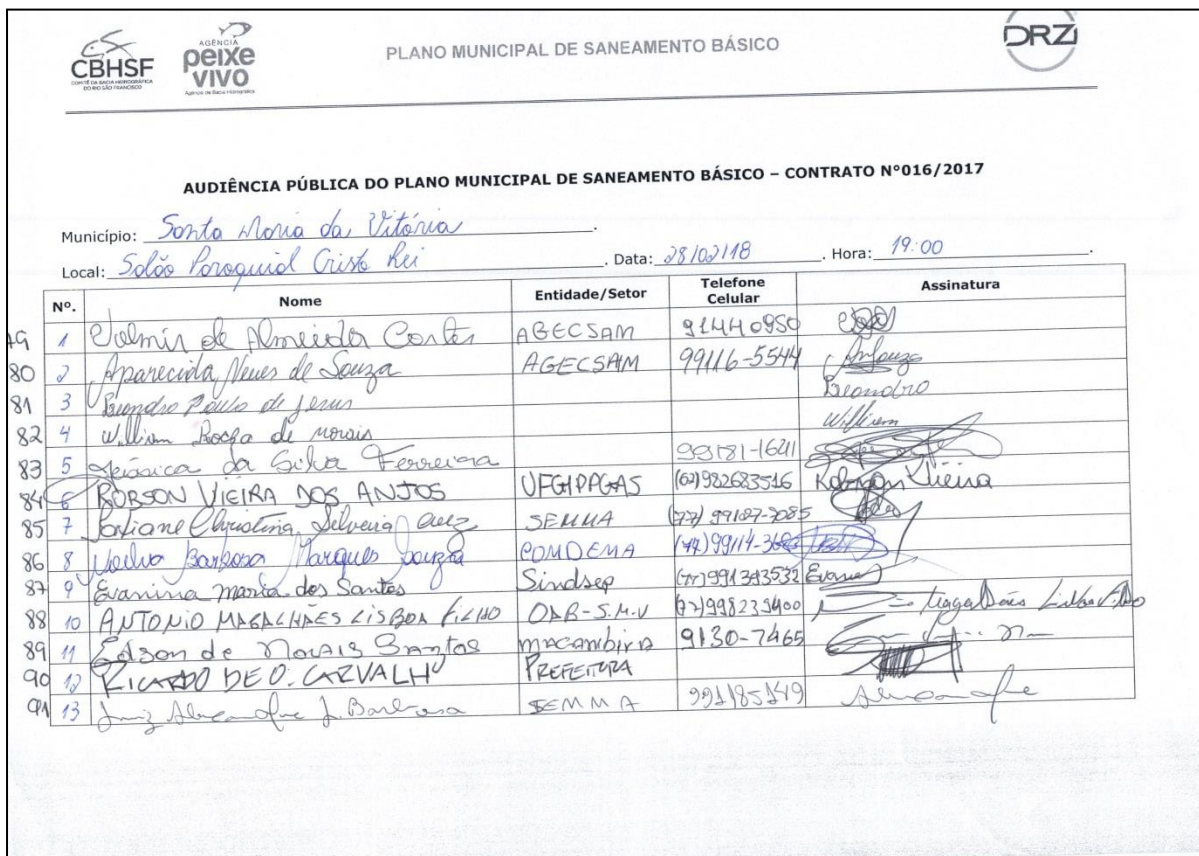 CBHSF
COMITÊ DA BACIA HIDROGRÁFICA
DO RIO SÃO FRANCISCO
AGÊNCIA
peixe
vivo
Agência de Bacia Hidrográfica
PLANO MUNICIPAL DE SANEAMENTO BÁSICO
DRZ
AUDIÊNCIA PÚBLICA DO PLANO MUNICIPAL DE SANEAMENTO BÁSICO – CONTRATO Nº016/2017
Município: Santa Maria da Vitória.
Local: Salão Paroquial Cristo Rei. Data: 28/02/18. Hora: 19:00.
Nº. Nome Entidade/Setor Telefone Celular Assinatura
1 de Almeida AGECSAM 91440950
80 2 Aparecida Neves de Souza AGECSAM 99116-5544
81 3 Leandro Paulo de Jesus Leandro
82 4 William Rocha de morais William
83 5 da Silva Ferreira 99181-1641
84 6 ROBSON VIEIRA DOS ANJOS UFG/PPGAS (62)982683516 Robson Vieira
85 7 Christina Silveira SEMMA
86 8 Barbosa Marques Souza COMDEMA
87 9 Evanina maria dos Santos Sindsep (77)991343532
88 10 ANTONIO MAGALHÃES LISBOA FILHO OAB-S.M.V (77)998239400
89 11 Edson de Morais Santos macambira 9130-7465
90 12 RICARDO DE O. CARVALHO PREFEITURA
91 13 Luiz Alexandre J. Barbosa SEMMA 991185149 Alexandre